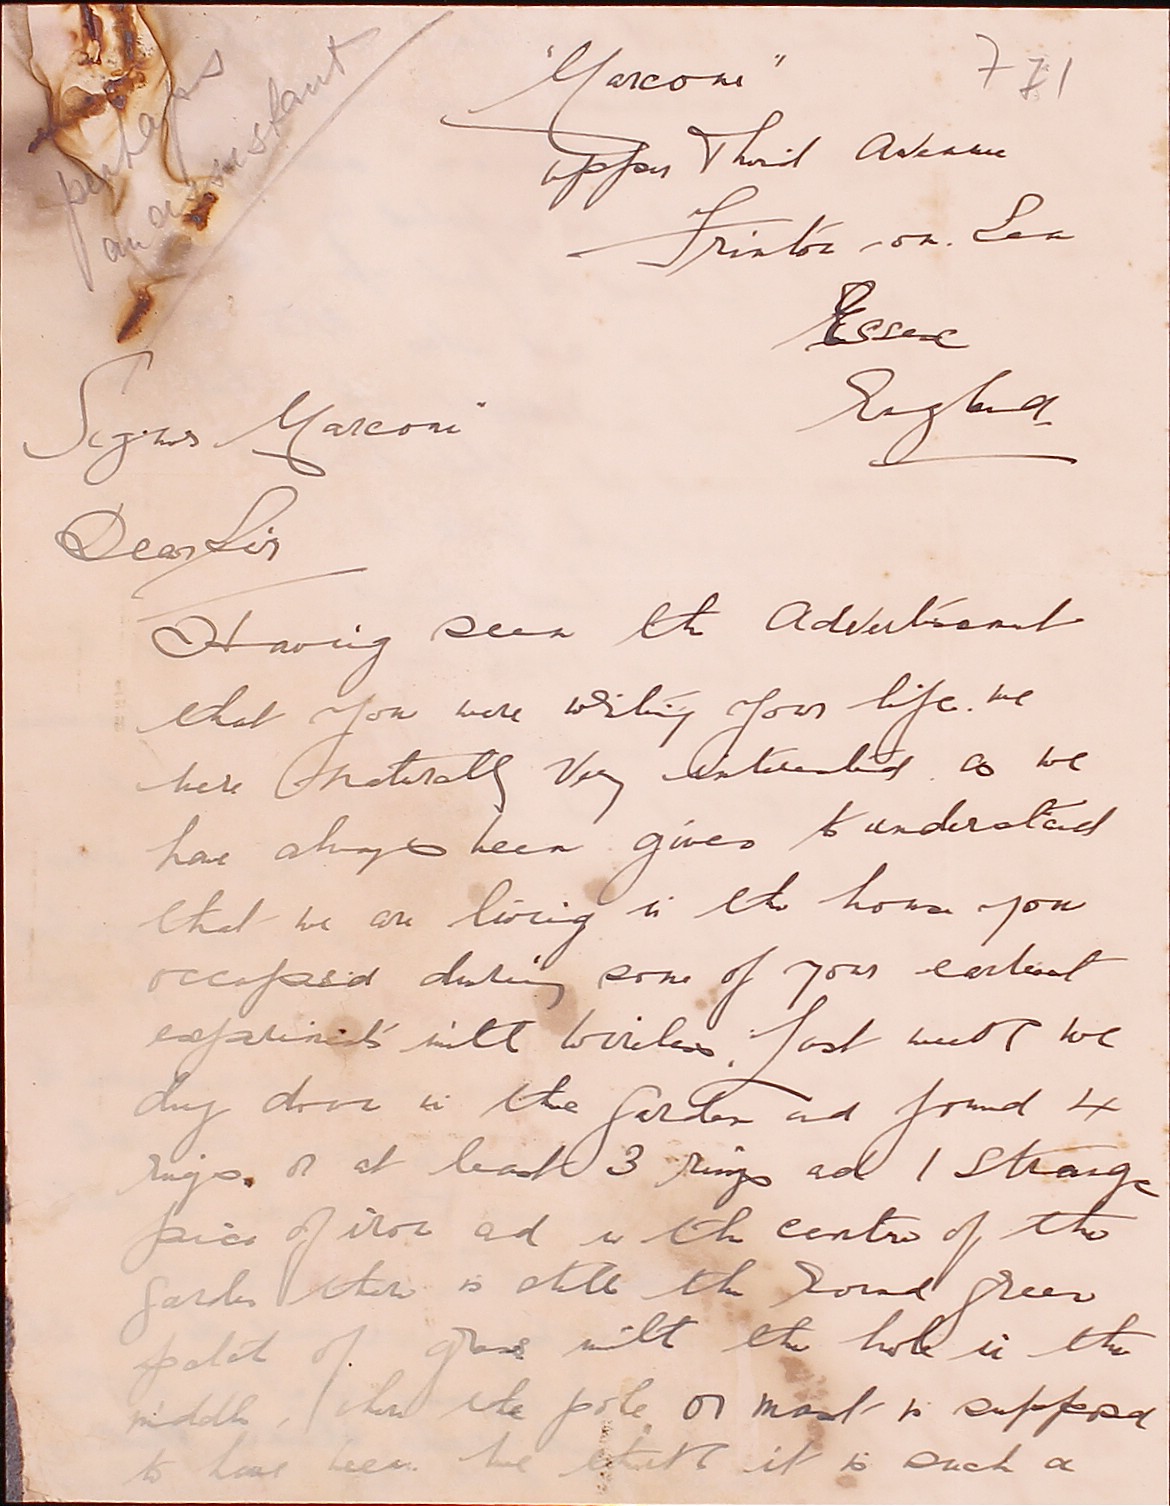 perhaps
an assistant
771
"Marconi"
Upper Third Avenue
Frinton-on-Sea
Essex
England
Signor Marconi
Dear Sir
Having seen the Advertisement
that you were writing your life. we
were naturally very interested as we
have always been given to understand
that we are living in the house you
occupied during some of your earliest
experiments with wireless. Last week we
dug down in the garden and found 4
rings. or at least 3 rings and 1 strange
piece of iron and in the centre of the
garden there is still the round green
patch of grass with the hole in the
middle, where the pole or mast is supposed
to have been. We think it is such a